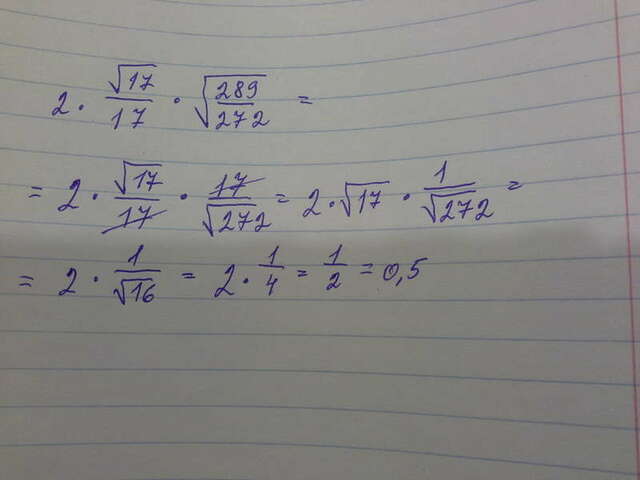 2 · √17/17 · √(289/272) =
= 2 · √17/17 · 17/√272 = 2 · √17 · 1/√272 =
= 2 · 1/√16 = 2 · 1/4 = 1/2 = 0,5